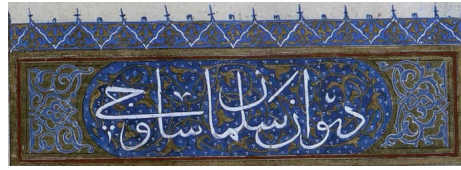 دیوان سلمان ساوجی